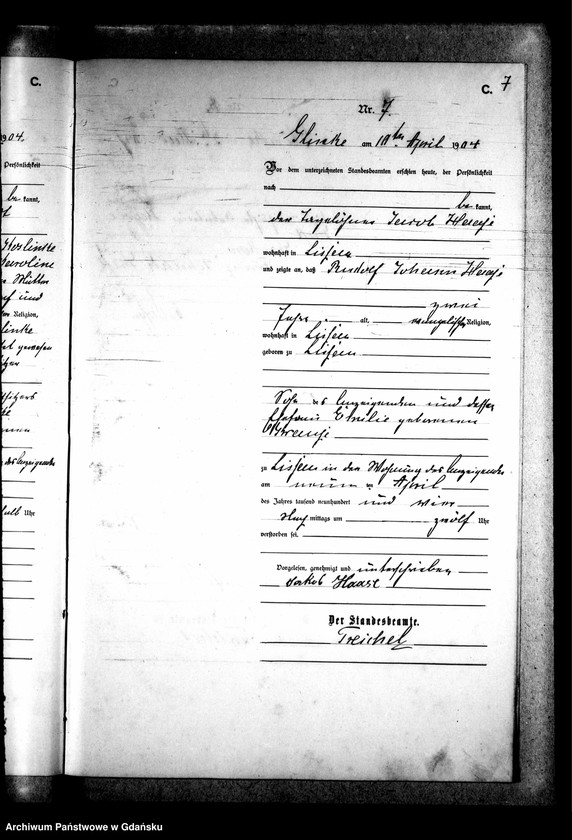 C.
904.
Persönlichkeit
be kannt,
Mutter
und
Religion,
Uhr
C. 7
Nr. 7.
Glinke am 10ten April 1904
Vor dem unterzeichneten Standesbeamten erschien heute, der Persönlichkeit
nach
be kannt,
der Jacob Haase
wohnhaft in Lissen
und zeigte an, daß Rudolf Johann Haase
zwei
Jahre alt, evangelischer Religion,
wohnhaft in Lissen
geboren zu Lissen
Sohn des Anzeigenden und dessen
Ehefrau Emilie geborenen
zu Lissen in der Wohnung des Anzeigenden
am neunten April
des Jahres tausend neunhundert und vier
Nach mittags um zwölf Uhr
verstorben sei.
Vorgelesen, genehmigt und unterschrieben
Jakob Haase
Der Standesbeamte.
Treichel
Archiwum Państwowe w Gdańsku